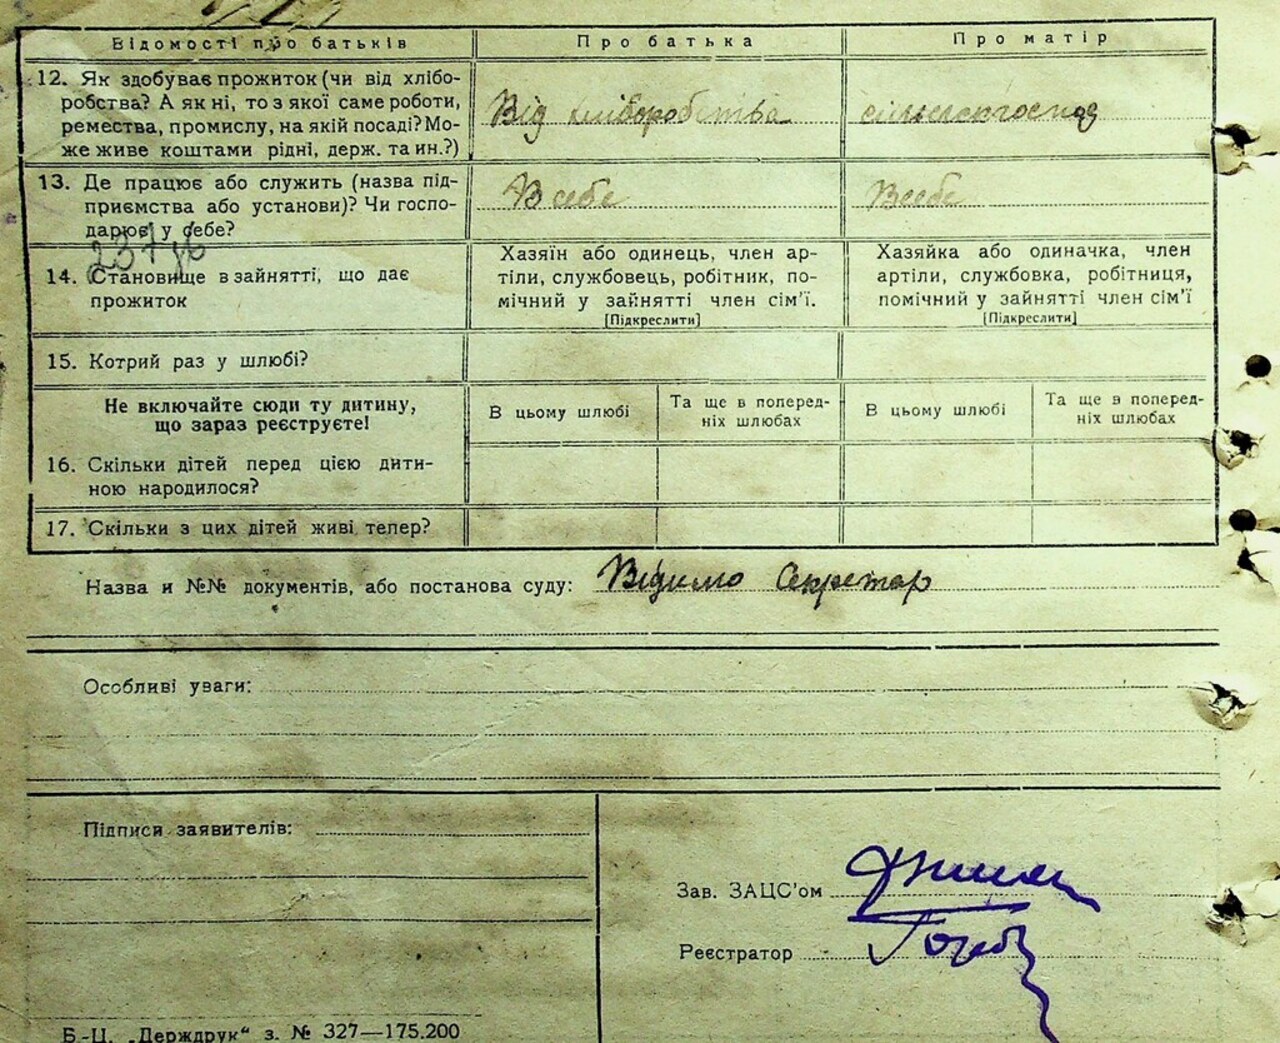 Відомості про батьків
Про батька
Про матір
12. Як здобуває прожиток (чи від хлібо-
робства? А як ні, то з якої саме роботи,
ремества, промислу, на якій посаді? Мо-
же живе коштами рідні, держ. та ин.?)
Від хліборобства
сільськогоспод
13. Де працює або служить (назва під-
приємства або установи)? Чи госпо-
дарює у себе?
В себе
В себе
14. Становище в зайнятті, що дає
прожиток
Хазяїн або одинець, член ар-
тіли, службовець, робітник, по-
мічний у зайнятті член сім'ї.
[Підкреслити]
Хазяйка або одиначка, член
артіли, службовка, робітниця,
помічний у зайнятті член сім'ї
[Підкреслити]
15. Котрий раз у шлюбі?
Не включайте сюди ту дитину,
що зараз реєструєте!
В цьому шлюбі
Та ще в поперед-
ніх шлюбах
В цьому шлюбі
Та ще в поперед-
ніх шлюбах
16. Скільки дітей перед цією дити-
ною народилося?
17. Скільки з цих дітей живі тепер?
Назва и №№ документів, або постанова суду: Відимо Секретар
Особливі уваги:
Підписи заявителів:
Зав. ЗАЦС'ом
Реєстратор
Б.-Ц. „Держдрук" з. № 327—175.200